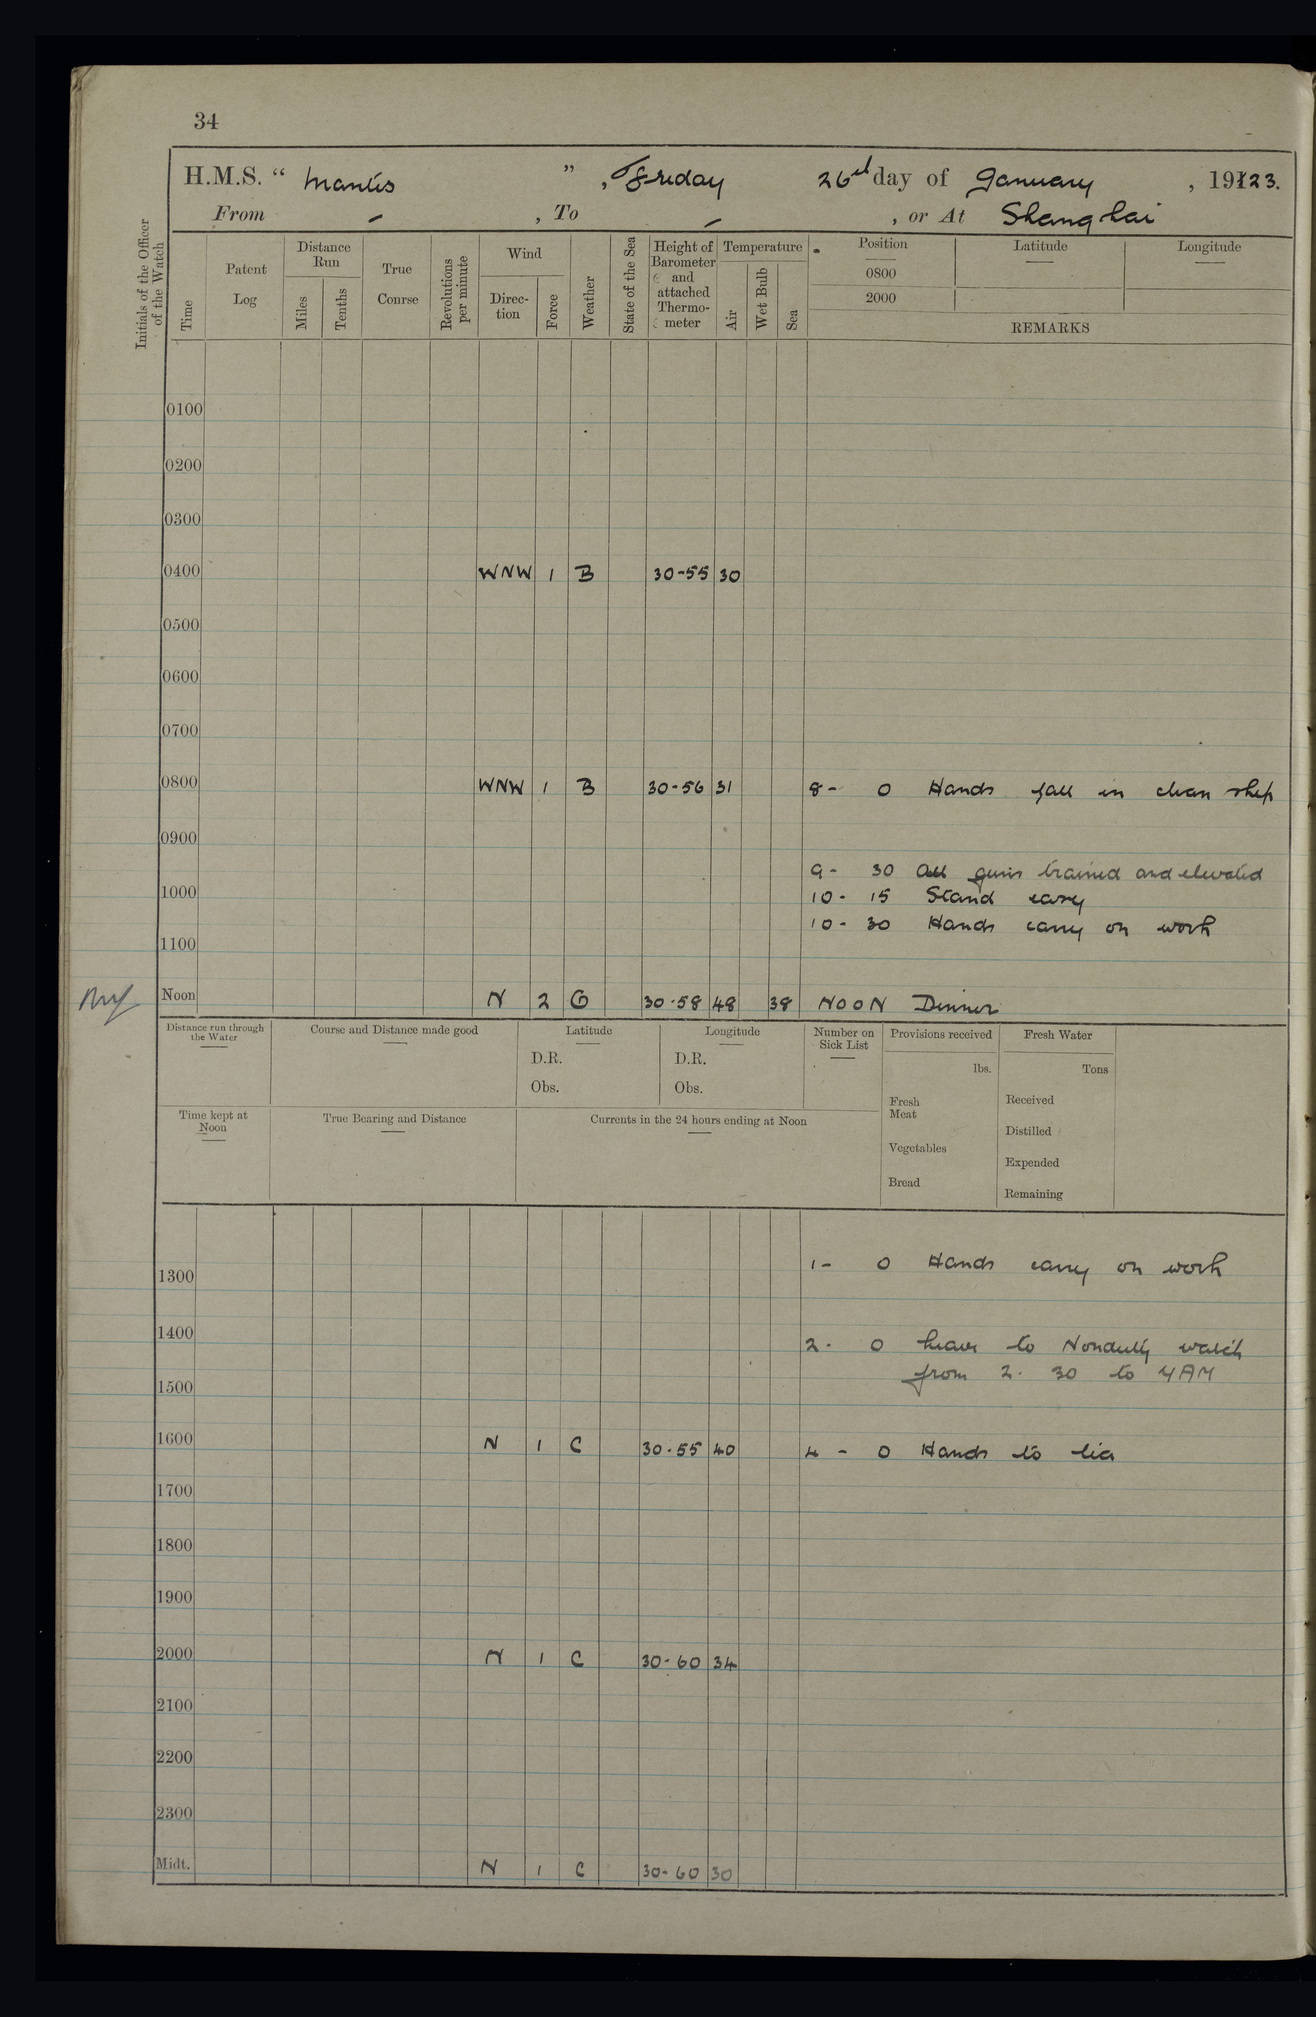 34
H.M.S. “ Mantis ” , Friday 26th day of January , 19123.
From - , To - , or At Shanghai
Initials of the Officer of the Watch
Time
Patent Log
Distance Run
Miles
Tenths
True Course
Revolutions per minute
Wind
Direc-tion
Force
Weather
State of the Sea
Height of Barometer and attached Thermo-meter
Temperature
Air
Wet Bulb
Sea
Position Latitude Longitude
0800
2000
REMARKS
0100
0200
0300
0400 WNW 1 B 30-55 30
0500
0600
0700
0800 WNW 1 B 30-56 31 8- 0 Hands fall in clean ship
0900
9- 30 All guns trained and elevated
1000 10- 15 Stand easy
10- 30 Hands carry on work
1100
Noon N 2 G 30-58 48 38 NOON Dinner
Distance run through the Water
Course and Distance made good
Latitude
D.R.
Obs.
Longitude
D.R.
Obs.
Number on Sick List
Provisions received
lbs.
Fresh Meat
Vegetables
Bread
Fresh Water
Tons
Received
Distilled
Expended
Remaining
Time kept at Noon
True Bearing and Distance
Currents in the 24 hours ending at Noon
1300 1- 0 Hands carry on work
1400 2- 0 Leave to Nonduty watch
from 2. 30 to 4 AM
1500
1600 N 1 C 30-55 40 4 - 0 Hands to tea
1700
1800
1900
2000 N 1 C 30-60 34
2100
2200
2300
Midt. N 1 C 30-60 30